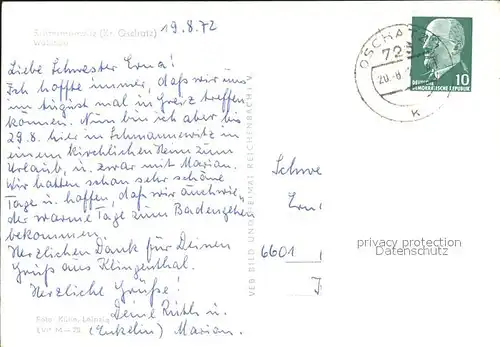 19.8.72
Schmannewitz (Kr. Oschatz)
Waldbad
Liebe Schwester Erna!
Ich hoffte immer, daß wir uns
im August mal in Greiz treffen
können. Nun bin ich aber bis
29.8. hier in Schmannewitz in
einem kirchlichen Heim zum
Urlaub, u. zwar mit Marian.
Wir hatten schon sehr schöne
Tage u. hoffen, daß wir auch wie-
der warme Tage zum Badengehen
bekommen.
Herzlichen Dank für Deinen
Gruß aus Klingenthal.
Herzliche Grüße!
Deine Ruth u.
(Enkelin) Marian.
Foto: Kühn, Leipzig
VEB BILD UND HEIMAT REICHENBACH I. V.
OSCHATZ
726
20.-8.
K
10
DEUTSCHE
DEMOKRATISCHE REPUBLIK
Schwe
Ern
6601
privacy protection
Datenschutz